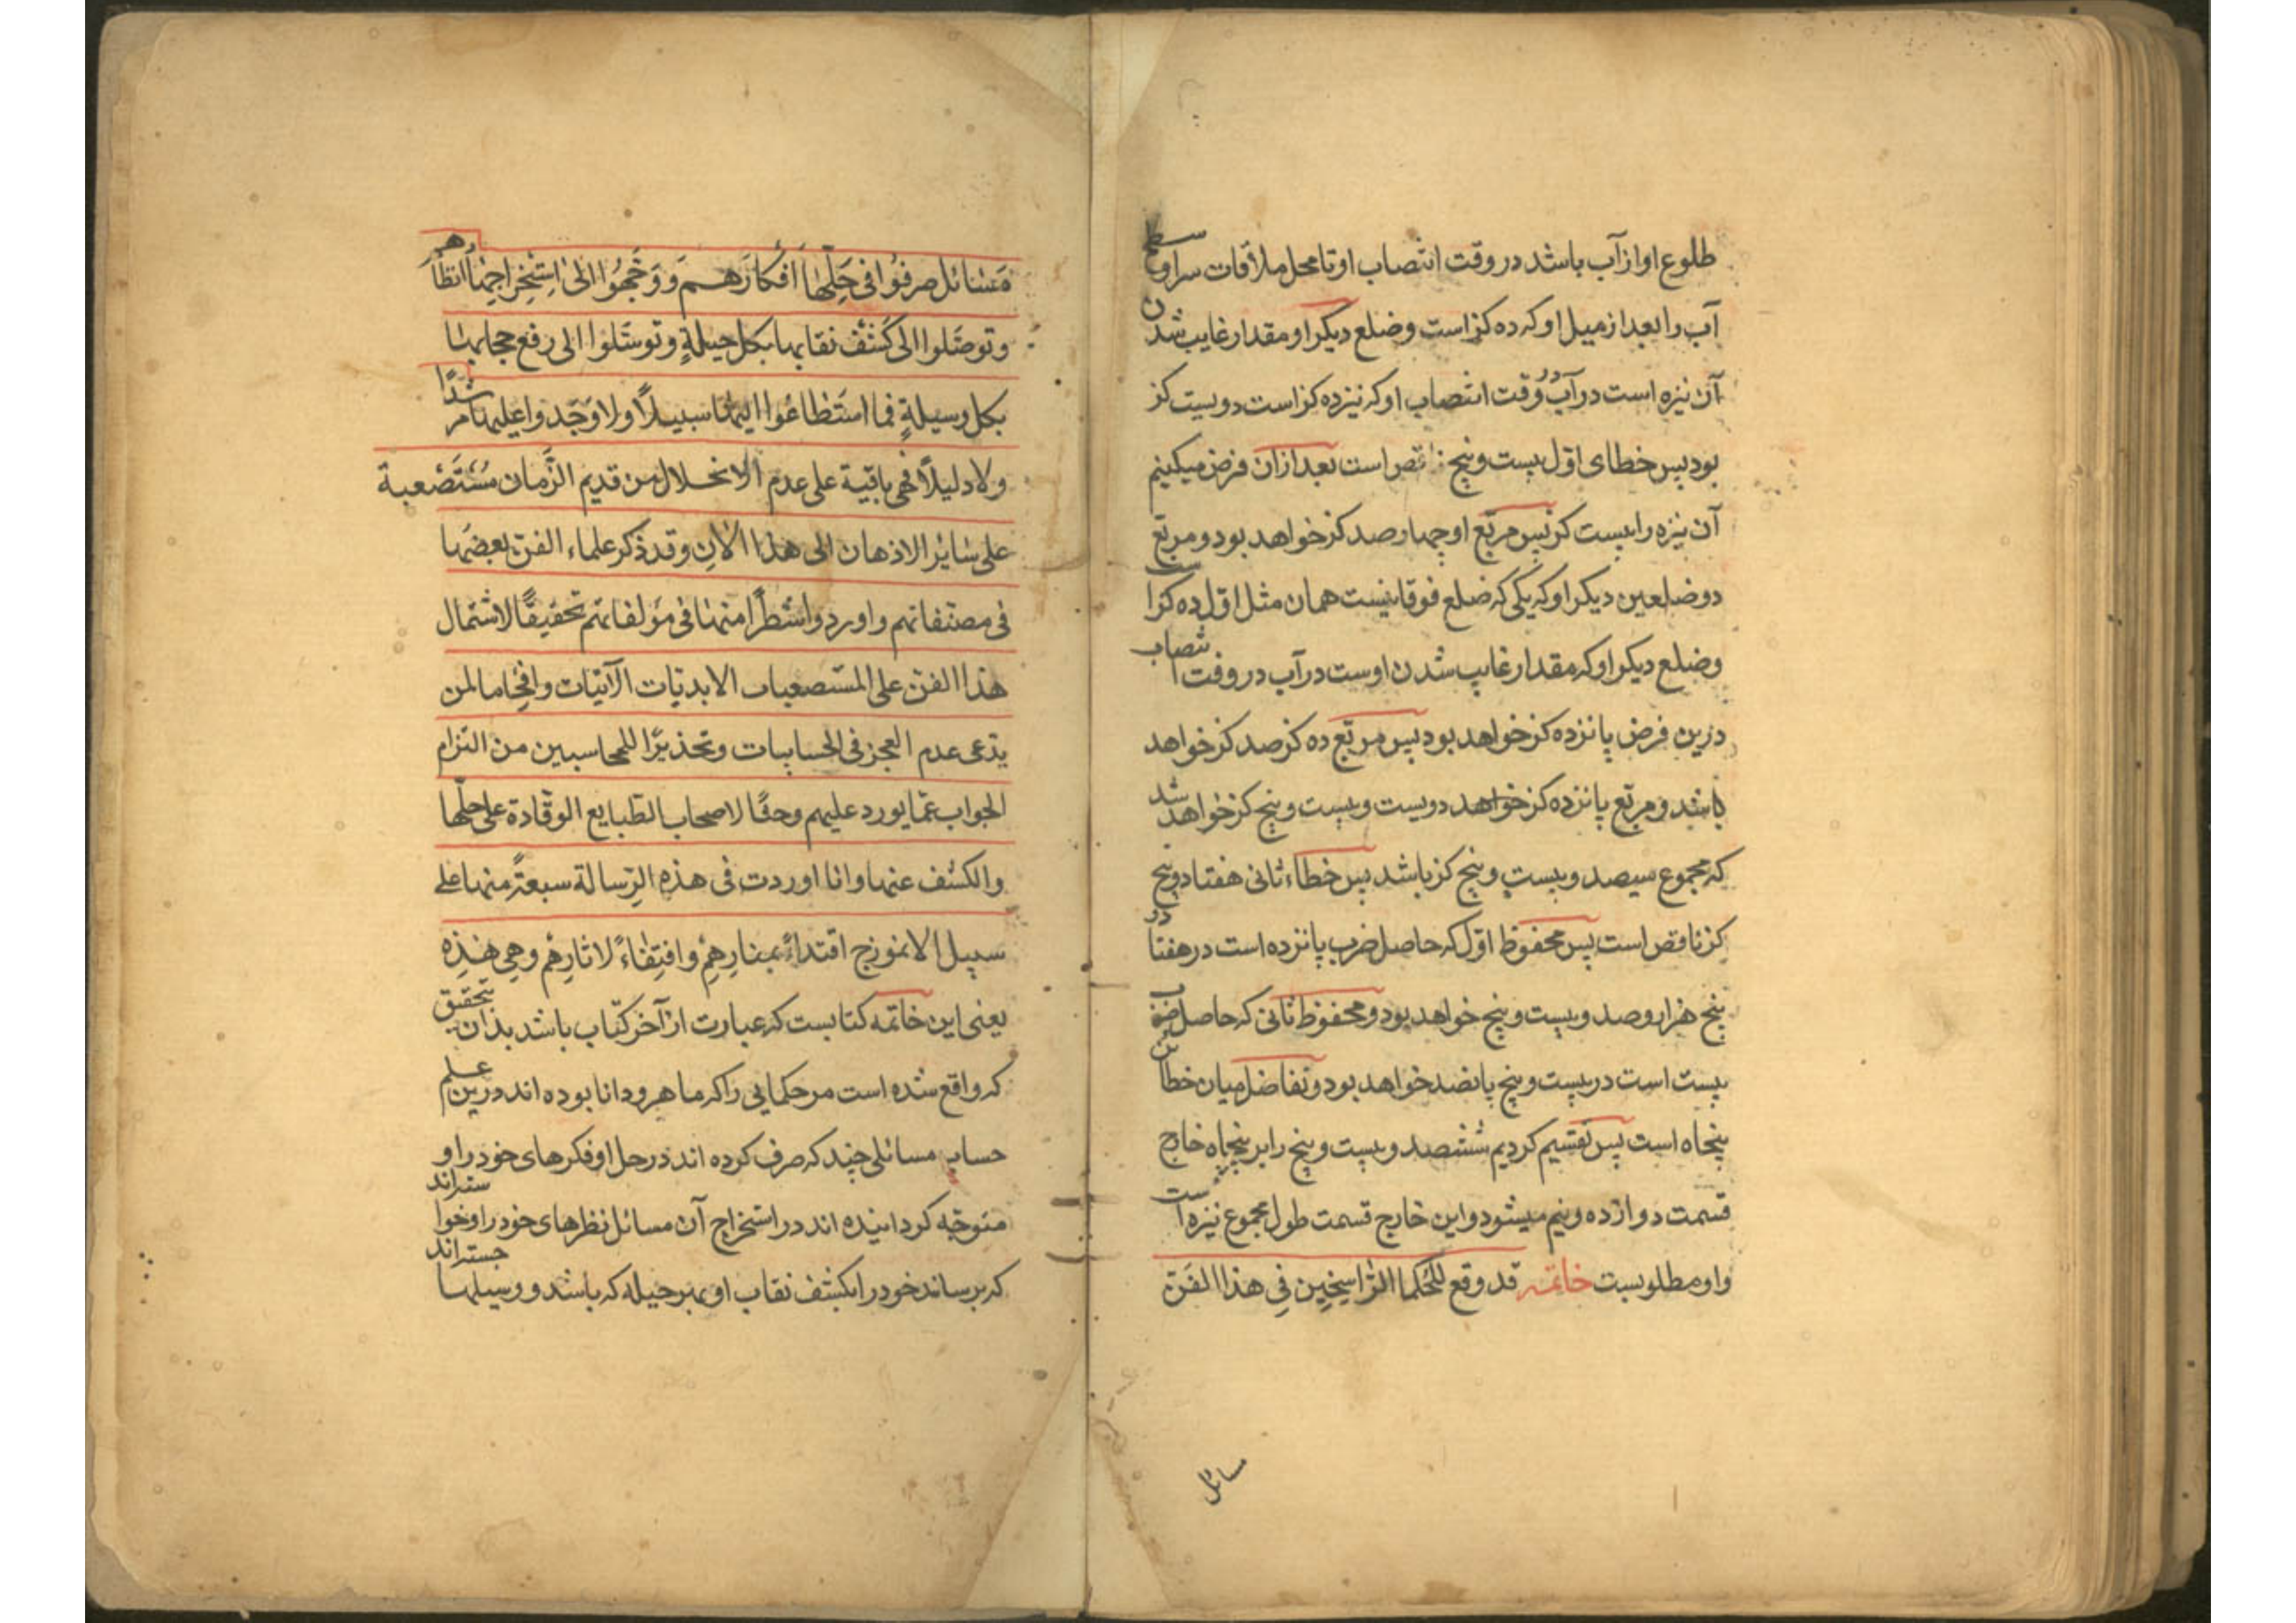 طلوع او از آب باشد در وقت انتصاب او تا محل ملاقات سر او سطح
آب را بعد از میل او که ده کز است وضلع دیکر او مقدار غایب شدن
آن نیزه است در آب در وقت انتصاب او که نیزده کز است دویست کز
بود پس خطای اول بیست و پنج ناقص است بعد ازان فرض میکنیم
آن نیزه را بیست کز پس مربّع او چهار صد کز خواهد بود و مربّع
دو ضلعین دیکر او که یکی که ضلع فوقانیست همان مثل اول ده کز است
وضلع دیکر او که مقدار غایب شدن اوست در آب در وقت انتصاب
درین فرض پانزده کز خواهد بود پس مربّع ده کز صد کز خواهد
باشد و مربّع پانزده کز خواهد دویست و بیست و پنج کز خواهد شد
که مجموع سیصد و بیست و پنج کز باشد پس خطاء ثانی هفتاد و پنج
کز ناقص است پس محفوظ اول که حاصل ضرب پانزده است در هفتاد و
پنج هزار و صد و بیست و پنج خواهد بود و محفوظ ثانی که حاصل ضرب
بیست است در بیست و پنج پانصد خواهد بود و تفاضل میان خطائین
پنجاه است پس تقسیم کردیم ششصد و بیست و پنج را بر پنجاه خارج
قسمت دوازده و نیم میشود و این خارج قسمت طول مجموع نیزه است
واو مطلوبست خاتمه قد وقع للحُکما الرّاسِخِین فِی هذا الفَنّ
مسائل
مَسَائل صرفوُا فی حَلِّهَا اَفکارَهُم وَوَجَّهُوا الیٰ اِستِخراجِهَا انظارهم
وتوصَّلوا الی کَشف نقابها بکل حیلةٍ وتوسَّلوا الی رفع حجابها
بکل وسیلةٍ فما استَطاعُوا الیها سبیلاً ولا وَجَدوا علیها مرشدًا
ولا دلیلاً فهی باقیة علی عدم الانحلال من قدیم الزّمان مُستَصعبة
علی سایر الاذهان الی هذا الاٰنِ وقد ذکر علماء الفنّ بعضَها
فی مصنّفاتهم واوردوا شطرًا منها فی مؤلفاتهم تحقیقًا لاشتمال
هذا الفنّ علی المستصعبات الابدیّات الآبیّات وافحاما لمن
یدّعی عدم العجز فی الحسابیات وتحذیرًا للمحاسبین من التزام
الجواب عمّا یورد علیهم وحثًّا لاصحاب الطّبایع الوقّادة علی حلّها
والکشف عنها وانا اوردت فی هذه الرّسالة سبعةً منها علی
سبیل الانموزج اقتداءً بمنارِهِم واقتِفاءً لاثارِهِم وهِی هٰذِهِ
یعنی این خاتمه کتابست که عبارت از آخر کتاب باشد بدان بتحقیق
که واقع شده است مر حکمایی را که ماهر و دانا بوده اند درین علم
حساب مسائلی چند که صرف کرده اند در حل او فکرهای خود را و
متوجّه کردانیده اند در استخراج آن مسائل نظرهای خود را و خواسته اند
که برسانند خود را بکشف نقاب او بهر حیله که باشد و وسیلها جسته اند